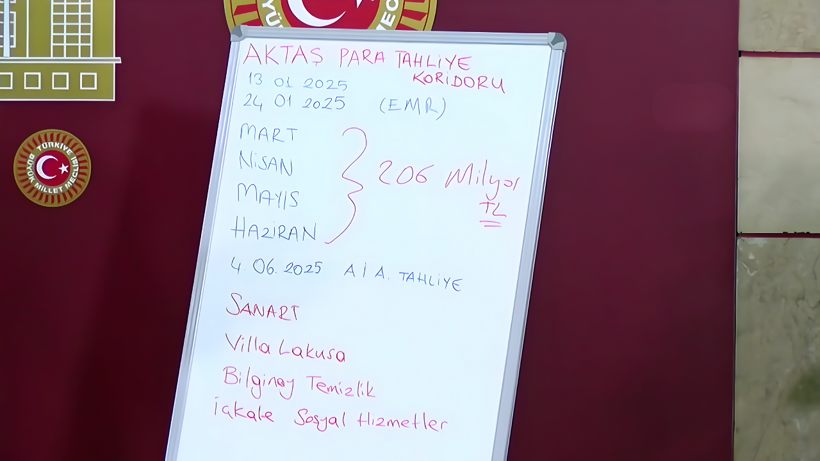 AKTAŞ PARA TAHLİYE
KORİDORU
13 01 2025
24 01 2025 (EMR)
MART
NİSAN
MAYIS
HAZİRAN
206 Milyor
TL
4.06.2025 A İ A. TAHLİYE
SANART
Villa Lakusa
Bilginay Temizlik
İakale Sosyal Hizmetler
TÜRKİYE
BÜYÜK MİLLET MECLİSİ